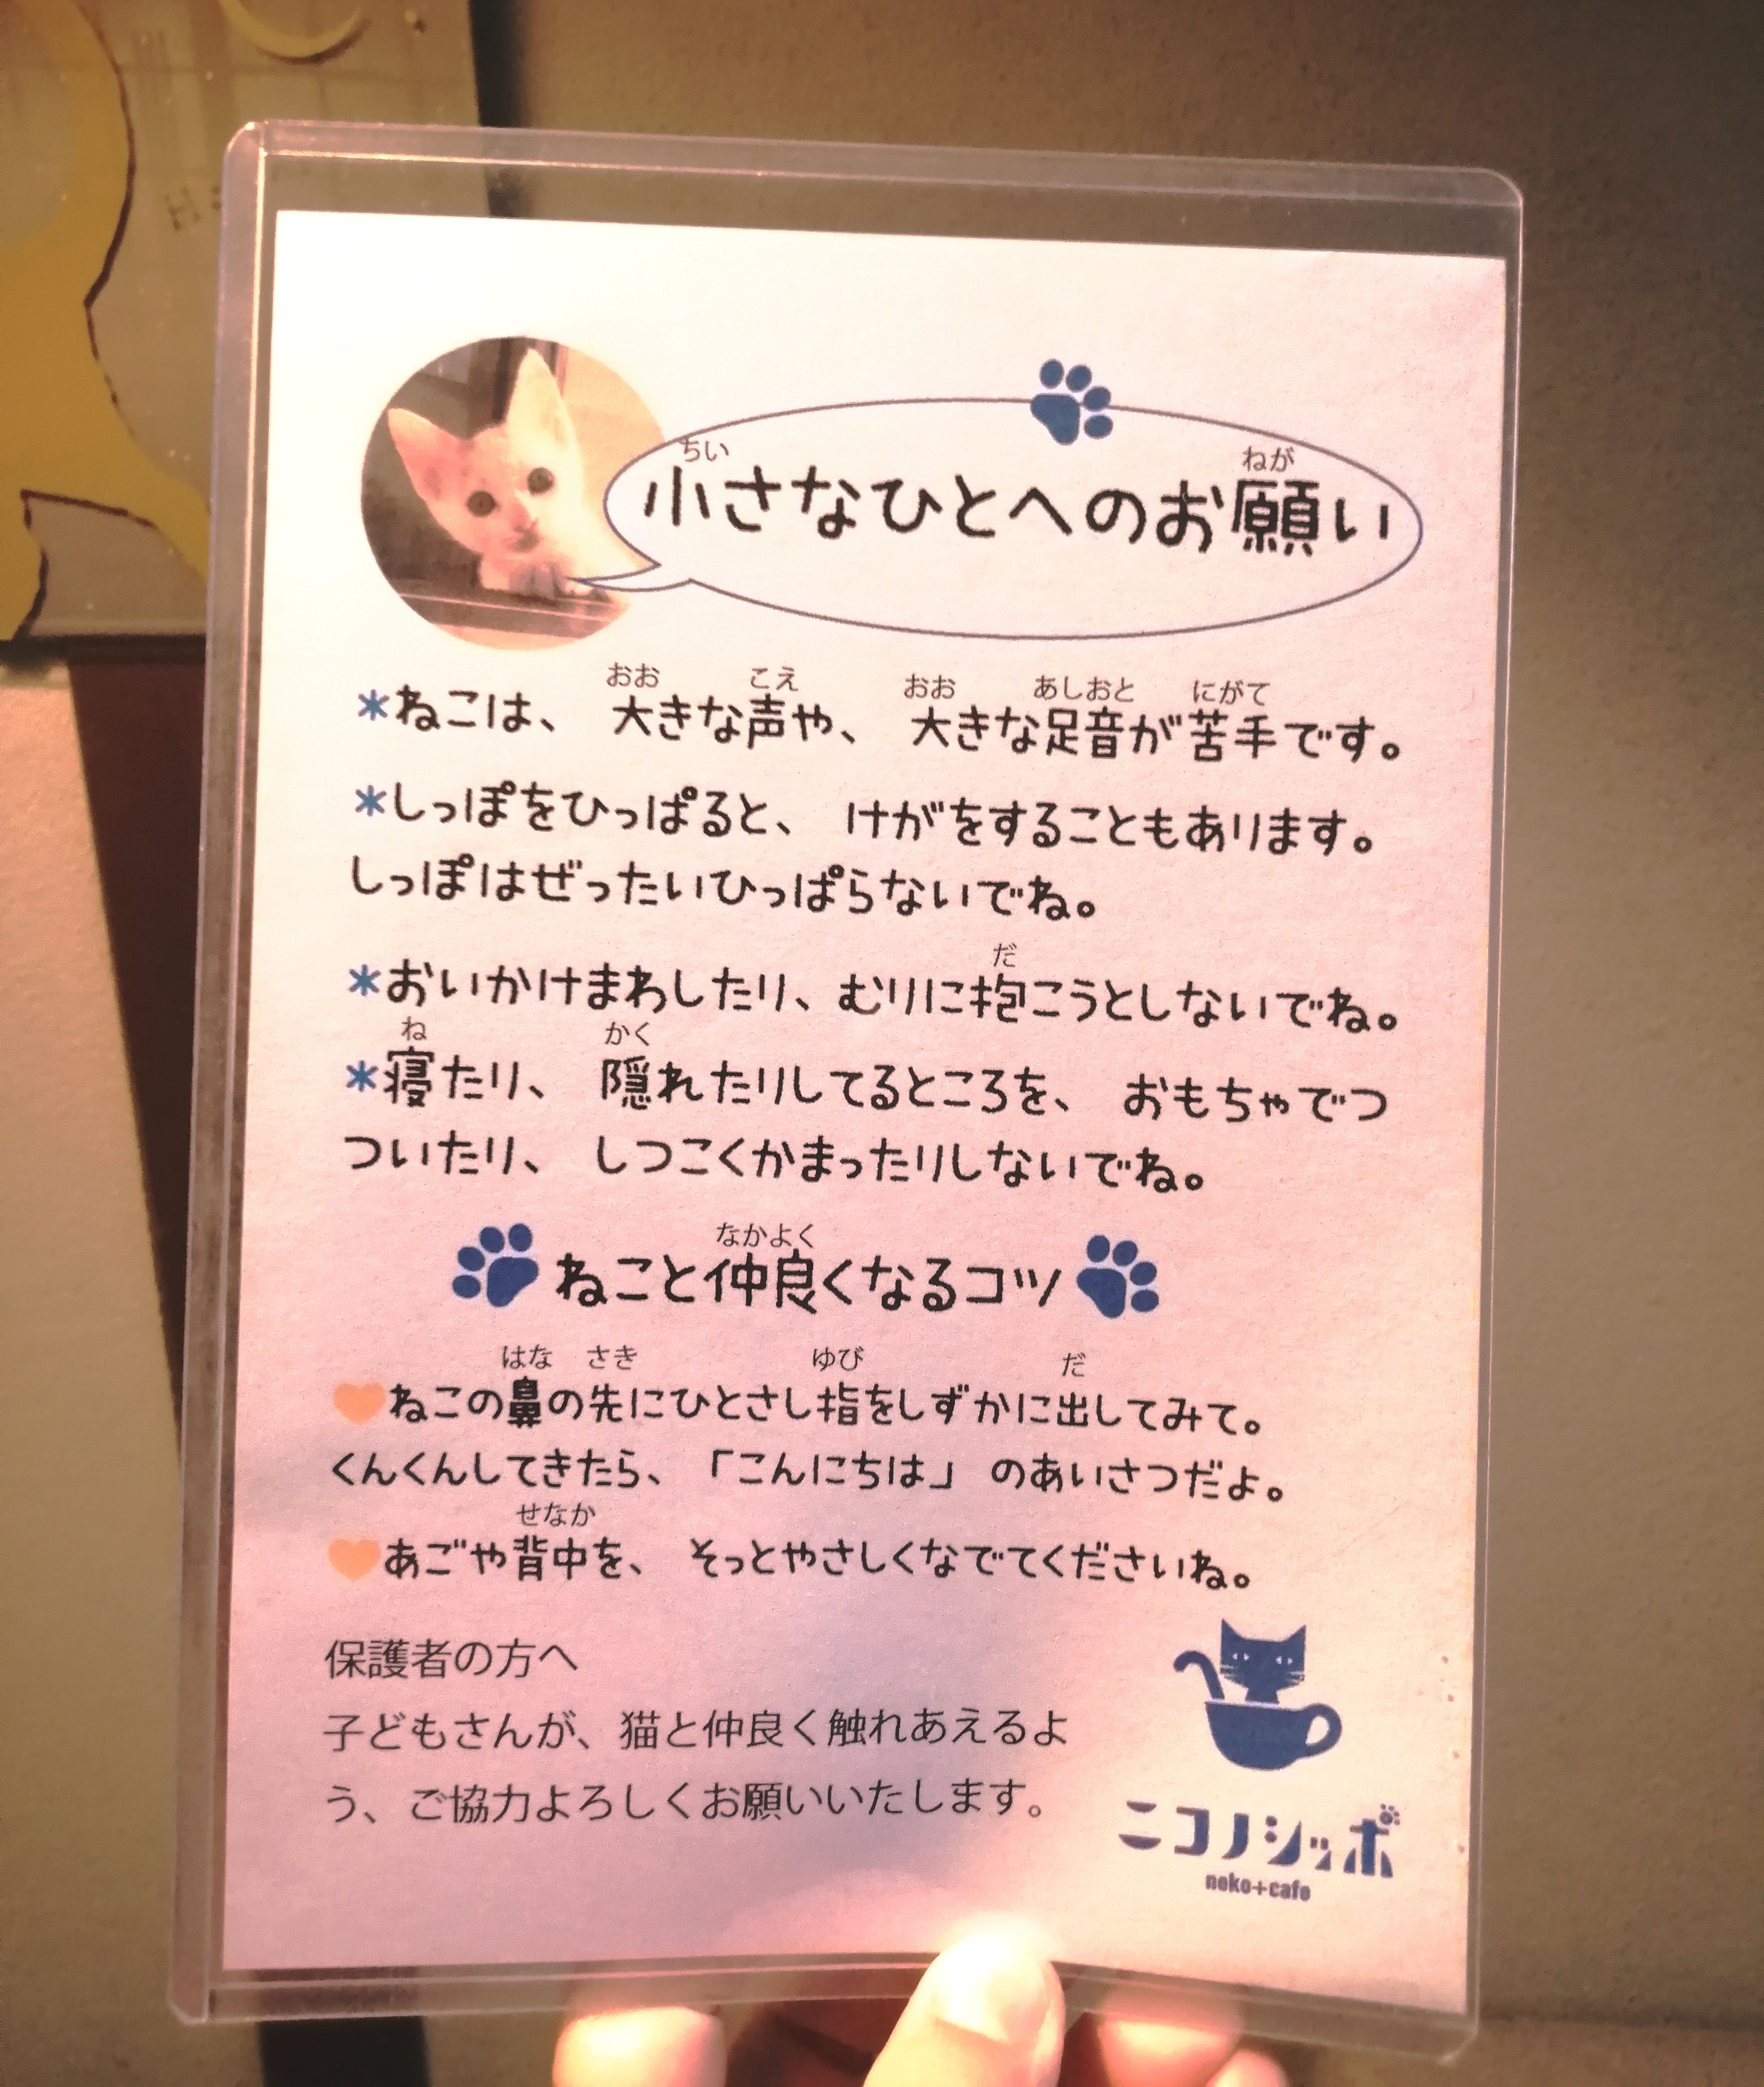 小さなひとへのお願い
ちい
ねが
*ねこは、大きな声や、大きな足音が苦手です。
おお
こえ
おお
あしおと
にがて
*しっぽをひっぱると、けがをすることもあります。
しっぽはぜったいひっぱらないでね。
*おいかけまわしたり、むりに抱こうとしないでね。
だ
*寝たり、隠れたりしてるところを、おもちゃでつ
ね
かく
ついたり、しつこくかまったりしないでね。
ねこと仲良くなるコツ
なかよく
ねこの鼻の先にひとさし指をしずかに出してみて。
はな
さき
ゆび
だ
くんくんしてきたら、「こんにちは」のあいさつだよ。
あごや背中を、そっとやさしくなでてくださいね。
せなか
保護者の方へ
子どもさんが、猫と仲良く触れあえるよ
う、ご協力よろしくお願いいたします。
ニコノシッポ
neko+cafe